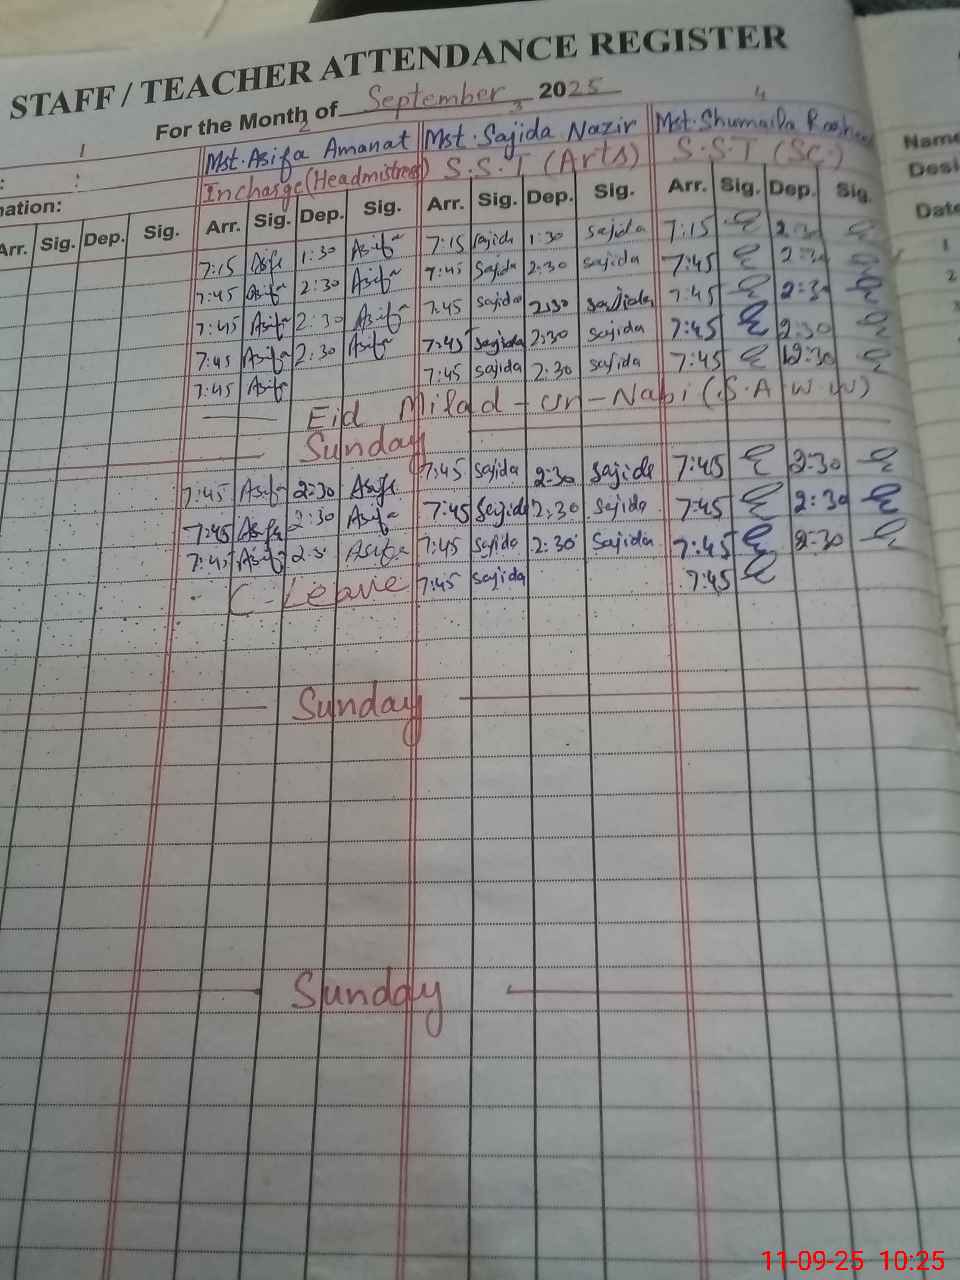 STAFF / TEACHER ATTENDANCE REGISTER
For the Month of September 2025
1 2 3 4
Mst. Asifa Amanat Mst. Sajida Nazir Mst. Shumaila
Incharge (Headmistress) S.S.T (Arts) S.S.T (Sc.)
Name
Arr. Sig. Dep. Sig. Arr. Sig. Dep. Sig. Arr. Sig. Dep. Sig. Arr. Sig. Dep. Sig.
Date
7:15 Asifa 1:30 Asifa 7:15 Sajida 1:30 Sajida 7:15 2:30
7:45 Asifa 2:30 Asifa 7:45 Sajida 2:30 Sajida 7:45 2:30
7:45 Asifa 2:30 Asifa 7:45 Sajida 2:30 Sajida 7:45 2:30
7:45 Asifa 2:30 Asifa 7:45 Sajida 2:30 Sajida 7:45 2:30
7:45 Asifa 7:45 Sajida 2:30 Sajida 7:45 2:30
Eid Milad-un-Nabi (S.A.W.W)
Sunday
7:45 Asifa 2:30 Asifa 7:45 Sajida 2:30 Sajida 7:45 2:30
7:45 Asifa 2:30 Asifa 7:45 Sajida 2:30 Sajida 7:45 2:30
7:45 Asifa Asifa 7:45 Sajida 2:30 Sajida 7:45 2:30
C-Leave 7:45 Sajida 7:45
Sunday
Sunday
11-09-25 10:25